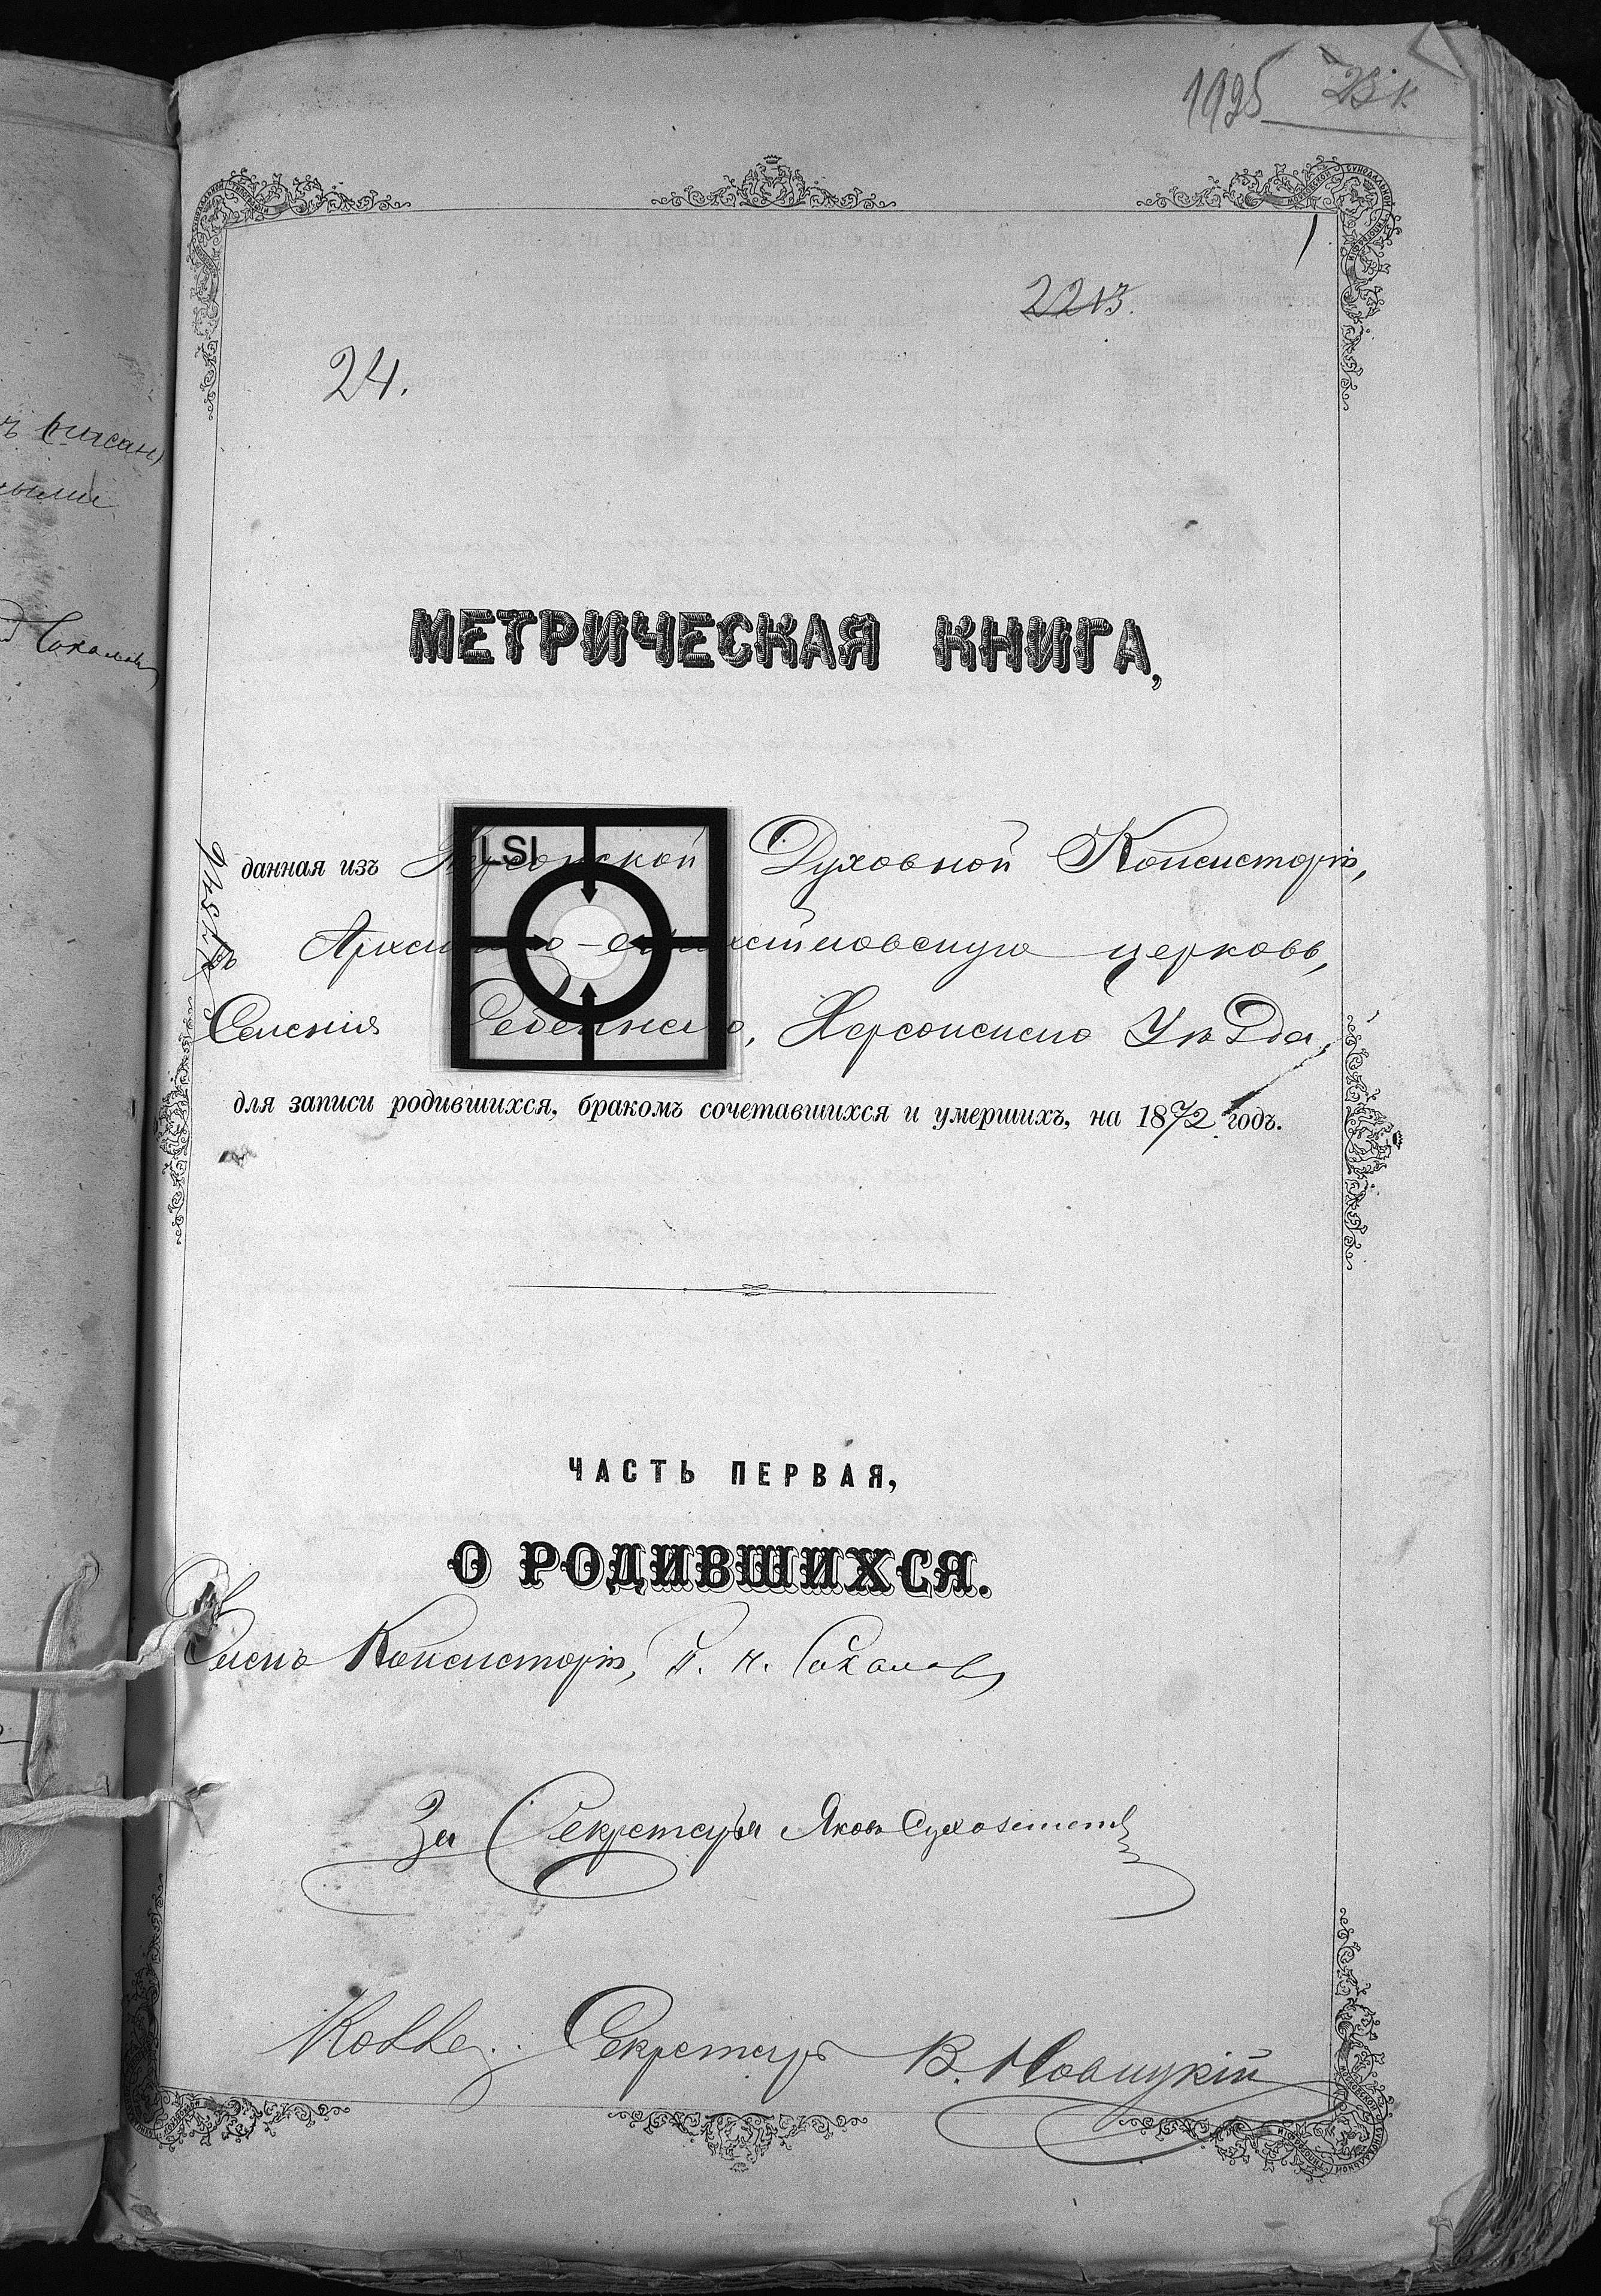 1925
2213.
24.
МЕТРИЧЕСКАЯ КНИГА,
LSI
данная изъ Херсонской Духовной Консисторіи,
въ церковь,
Селенія Херсонскаго Уѣзда,
для записи родившихся, бракомъ сочетавшихся и умершихъ, на 1872 годъ.
ЧАСТЬ ПЕРВАЯ,
О РОДИВШИХСЯ.
Членъ Консисторіи,
За Секретаря Яковъ
Секретарь В. Новицкій